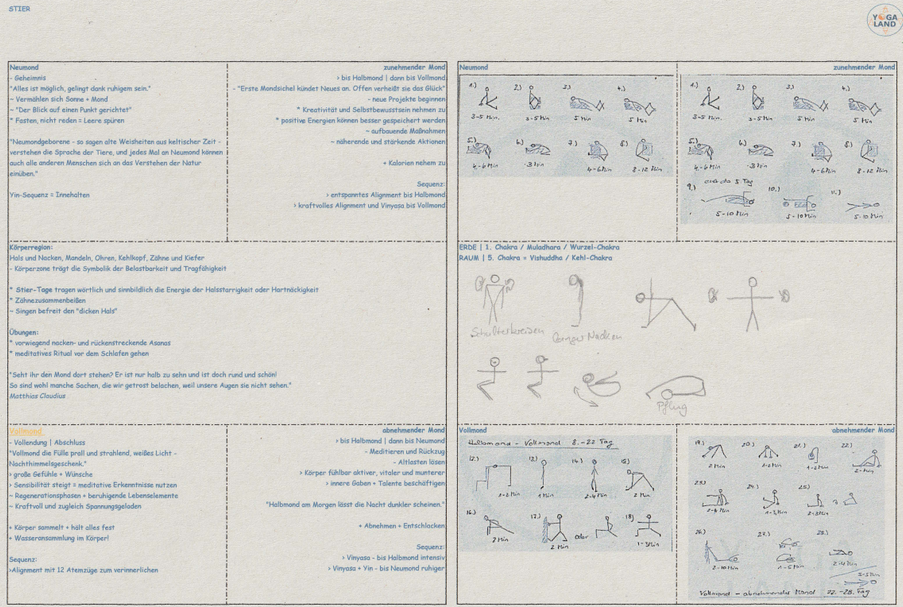 STIER
YOGA
LAND
Neumond
- Geheimnis
"Alles ist möglich, gelingt dank ruhigem sein."
~ Vermählen sich Sonne + Mond
~ "Der Blick auf einen Punkt gerichtet"
* Fasten, nicht reden = Leere spüren
"Neumondgeborene - so sagen alte Weisheiten aus keltischer Zeit -
verstehen die Sprache der Tiere, und jedes Mal an Neumond können
auch alle anderen Menschen sich an das Verstehen der Natur
einüben."
Yin-Sequenz = Innehalten
zunehmender Mond
> bis Halbmond | dann bis Vollmond
- "Erste Mondsichel kündet Neues an. Offen verheißt sie das Glück"
- neue Projekte beginnen
* Kreativität und Selbstbewusstsein nehmen zu
* positive Energien können besser gespeichert werden
~ aufbauende Maßnahmen
~ nährende und stärkende Aktionen
+ Kalorien nehem zu
Sequenz:
> entspanntes Alignment bis Halbmond
> kraftvolles Alignment und Vinyasa bis Vollmond
Körperregion:
Hals und Nacken, Mandeln, Ohren, Kehlkopf, Zähne und Kiefer
- Körperzone trägt die Symbolik der Belastbarkeit und Tragfähigkeit
* Stier-Tage tragen wörtlich und sinnbildlich die Energie der Halsstarrigkeit oder Hartnäckigkeit
* Zähnezusammenbeißen
~ Singen befreit den "dicken Hals"
Übungen:
* vorwiegend nacken- und rückenstreckende Asanas
* meditatives Ritual vor dem Schlafen gehen
"Seht ihr den Mond dort stehen? Er ist nur halb zu sehn und ist doch rund und schön!
So sind wohl manche Sachen, die wir getrost belachen, weil unsere Augen sie nicht sehen."
Matthias Claudius
Vollmond
- Vollendung | Abschluss
"Vollmond die Fülle prall und strahlend, weißes Licht -
Nachthimmelsgeschenk."
> große Gefühle + Wünsche
> Sensibilität steigt = meditative Erkenntnisse nutzen
~ Regenerationsphasen + beruhigende Lebenselemente
~ Kraftvoll und zugleich Spannungsgeladen
+ Körper sammelt + hält alles fest
+ Wasseransammlung im Körper!
Sequenz:
>Alignment mit 12 Atemzüge zum verinnerlichen
abnehmender Mond
> bis Halbmond | dann bis Neumond
- Meditieren und Rückzug
- Altlasten lösen
> Körper fühlbar aktiver, vitaler und munterer
> innere Gaben + Talente beschäftigen
"Halbmond am Morgen lässt die Nacht dunkler scheinen."
+ Abnehmen + Entschlacken
Sequenz:
> Vinyasa - bis Halbmond intensiv
> Vinyasa + Yin - bis Neumond ruhiger
Neumond
1.) 2.) 3.) 4.)
3-5 Min 3-5 Min 5 Min 5 Min
5.) 6.) 7.) 8.)
4-6 Min 3 Min 4-6 Min 8-12 Min
zunehmender Mond
1.) 2.) 3.) 4.)
3-5 Min 3-5 Min 5 Min 5 Min
5.) 6.) 7.) 8.)
4-6 Min 3 Min 4-6 Min 8-12 Min
5. Tag
9.) 10.) 11.)
5-10 Min 5-10 Min 5-10 Min
ERDE | 1. Chakra / Muladhara / Wurzel-Chakra
RAUM | 5. Chakra = Vishuddha / Kehl-Chakra
Schulterkreisen
Langer Nacken
Pflug
Vollmond
Halbmond - Vollmond 8.-22 Tag
12.) 13.) 14.) 15.)
2-4 Min 2 Min
16.) 17.) oder 18.)
2 Min 2 Min 1-3 Min
abnehmender Mond
19.) 20.) 21.) 22.)
2 Min
23.) 24.) 25.)
26.) 27.) 28.)
2-10 Min
Vollmond - abnehmender Mond 22.-28. Tag